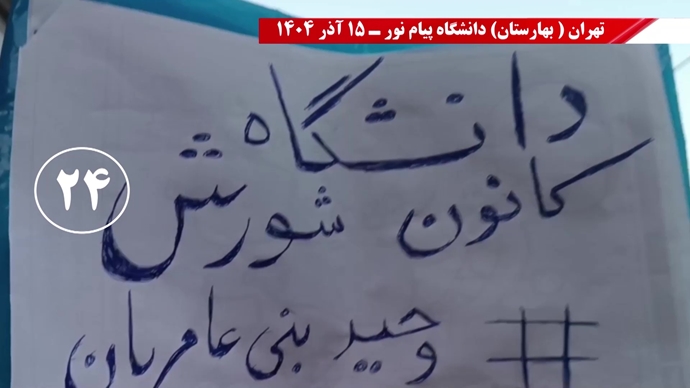 تهران ( بهارستان) دانشگاه پیام نور ــ ۱۵ آذر ۱۴۰۴
دانشگاه
کانون شورش
۲۴
# وحید بنی عامریان